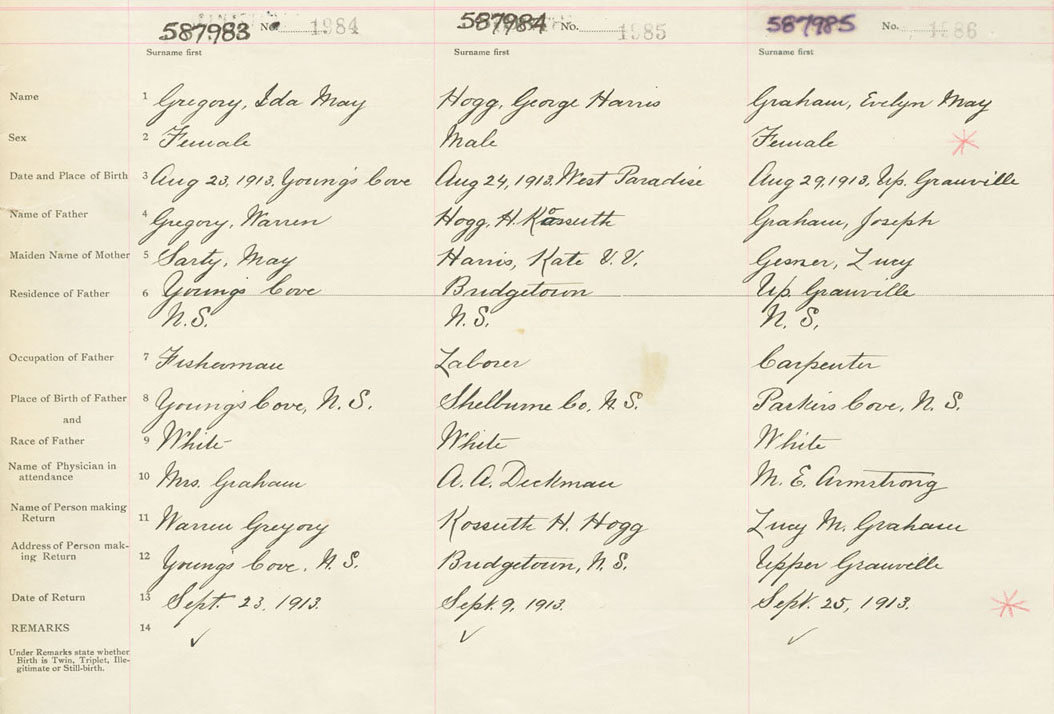 587983 No. 1984 587984 No. 1985 587985 No. 1986
Surname first Surname first Surname first
Name 1 Gregory, Ida May Hogg, George Harris Graham, Evelyn May
Sex 2 Female Male Female
Date and Place of Birth 3 Aug 23, 1913, Young's Cove Aug 24, 1913, West Paradise Aug 29, 1913, Up. Granville
Name of Father 4 Gregory, Warren Hogg, H. Kossuth Graham, Joseph
Maiden Name of Mother 5 Sarty, May Harris, Kate V. V. Gesner, Lucy
Residence of Father 6 Young's Cove Bridgetown Up. Granville
N.S. N.S. N.S.
Occupation of Father 7 Fisherman Laborer Carpenter
Place of Birth of Father 8 Young's Cove, N.S. Shelburne Co, N.S. Parkers Cove, N.S.
and
Race of Father 9 White White White
Name of Physician in
attendance 10 Mrs. Graham A. A. Deckman M. E. Armstrong
Name of Person making
Return 11 Warren Gregory Kossuth H. Hogg Lucy M. Graham
Address of Person mak-
ing Return 12 Young's Cove, N.S. Bridgetown, N.S. Upper Granville
Date of Return 13 Sept. 23, 1913. Sept. 9, 1913. Sept. 25, 1913.
REMARKS 14 ✓ ✓ ✓
Under Remarks state whether
Birth is Twin, Triplet, Ille-
gitimate or Still-birth.